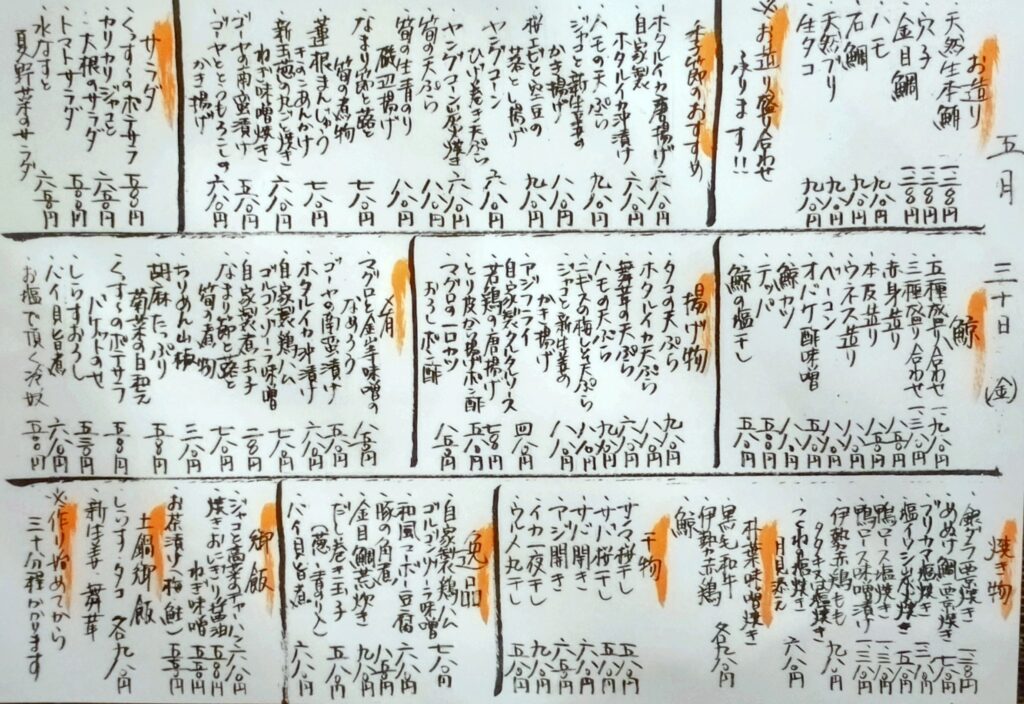 五月 三十日 (金)
お造り
・天然生本鮪 一二〇〇円
・穴子 一三〇〇円
・金目鯛 一三〇〇円
・ハモ 九八〇円
・石鯛 九八〇円
・天然ブリ 九八〇円
・生タコ 九八〇円
※お造り盛り合わせ
承ります!!
季節のおすすめ
・ホタルイカ唐揚げ 六八〇円
・自家製
ホタルイカ沖漬け 六八〇円
・ハモの天ぷら 九八〇円
・ジャコと新生姜の
かき揚げ 八八〇円
・桜エビと空豆の
茶とし揚げ 九八〇円
・ヤングコーン
ひげ巻き天ぷら 六八〇円
・ヤングコーン炭焼き 六八〇円
・筍の天ぷら 八八〇円
・筍の生青のり
磯辺揚げ 八八〇円
・なまり節と蕗と
筍の煮物 七八〇円
・蓮根まんじゅう
きのこあんかけ 七八〇円
・新玉葱の丸ごと焼き
ねぎ味噌焼き 六八〇円
・ゴーヤの南蛮漬け 五八〇円
・ゴーヤととうもろこしの
かき揚げ 六八〇円
サラダ
・くすくすのポテサラ 五八〇円
・カリカリジャコと
大根のサラダ 六五〇円
・トマトサラダ 五八〇円
・水なすと
夏野菜のサラダ 六八〇円
鯨
・五種盛り合わせ 一九八〇円
・三種盛り合わせ 一三八〇円
・赤身造り
・本皮造り
・ウネス造り
・ベーコン
・オバケ酢味噌
・鯨カツ
・テッパ
・鯨の塩干し 五八〇円
揚げ物
・タコの天ぷら 九八〇円
・ホタルイカ天ぷら 六八〇円
・舞茸の天ぷら
・ハモの天ぷら 九八〇円
・ニギスの梅しそ天ぷら 八八〇円
・ジャコと新生姜の
かき揚げ 八八〇円
・アジフライ
自家製タルタルソース
・若鶏の唐揚げ
・とり皮から揚げポン酢 五八〇円
・マグロの一口カツ
おろしポン酢
肴
・マグロと金山寺味噌の
なめろう 八五〇円
・ゴーヤの南蛮漬け 五八〇円
・ホタルイカ沖漬け 六八〇円
・自家製鶏ハム
ゴルゴンゾーラ味噌 七八〇円
・自家製煮玉子 二八〇円
・なまり節と蕗と
筍の煮物 七八〇円
・ちりめん山椒 三八〇円
・胡麻たっぷり
菊菜白和え 五八〇円
・くすくすのポテサラ
バゲットのせ 五八〇円
・しらすおろし 五三〇円
・バイ貝旨煮 六八〇円
・お塩で頂く冷奴 五八〇円
焼き物
・銀ダラ西京焼き 一二八〇円
・めぬけ鯛西京焼き
・ブリカマ塩焼き
・塩イワシ氷水焼き
・鴨ロース塩焼き
・鴨ロース味噌漬け
・伊勢赤鶏もも
タタキ塩焼き 九八〇円
・つくね塩焼き
月見添え 六八〇円
朴葉味噌焼き
・黒毛和牛
・伊勢赤鶏
・鯨 各九八〇円
干物
・サンマ桜干し 五八〇円
・サバ桜干し
・サバ開き
・アジ開き
・イカ一夜干し
・ウルメ丸干し 五八〇円
逸品
・自家製鶏ハム
ゴルゴンゾーラ味噌 七八〇円
・和風マーボー豆腐 六八〇円
・豚の角煮 八五〇円
・金目鯛荒炊き 九八〇円
・だし巻き玉子
(葱・青のり入) 六八〇円
・バイ貝旨煮 六八〇円
御飯
・ジャコと高菜のチャーハン 六八〇円
・焼きおにぎり醤油 五五〇円
ねぎ味噌 五五〇円
・お茶漬け(梅・鮭) 五五〇円
土鍋御飯
・しらす・タコ 各九八〇円
・新生姜・舞茸
※作り始めてから
三十分程かかります